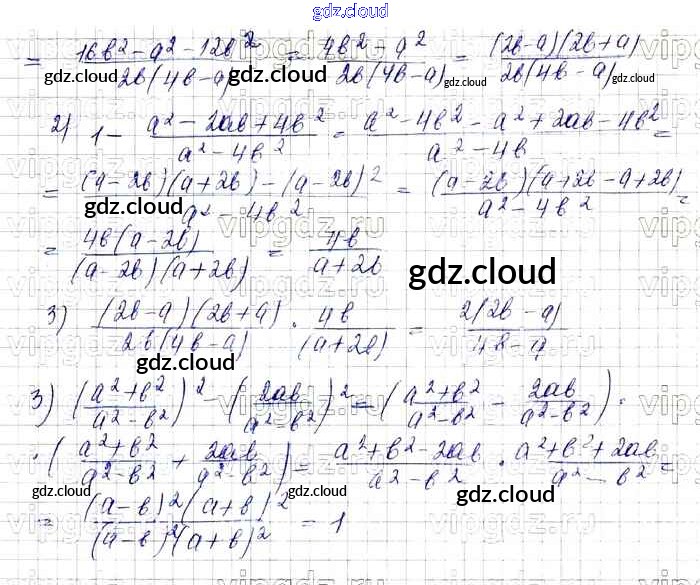 gdz.cloud
= (16b² - a² - 12b²)/(2b(4b-a)) = (4b² - a²)/(2b(4b-a)) = ((2b-a)(2b+a))/(2b(4b-a))
gdz.cloud gdz.cloud gdz.cloud
2) 1 - (a² - 2ab + 4b²)/(a² - 4b²) = (a² - 4b² - a² + 2ab - 4b²)/(a² - 4b) =
= ((a-2b)(a+2b) - (a-2b)²)/(a² - 4b²) = ((a-2b)(a+2b-a+2b))/(a² - 4b²) =
gdz.cloud
= (4b(a-2b))/((a-2b)(a+2b)) = 4b/(a+2b)
gdz.cloud
3) ((2b-a)(2b+a))/(2b(4b-a)) · 4b/(a+2b) = (2(2b-a))/(4b-a)
gdz.cloud
3) ((a²+b²)/(a²-b²))² - (2ab/(a²-b²))² = ((a²+b²)/(a²-b²) - 2ab/(a²-b²)) ·
gdz.cloud gdz.cloud
· ((a²+b²)/(a²-b²) + 2ab/(a²-b²)) = (a²+b²-2ab)/(a²-b²) · (a²+b²+2ab)/(a²-b²) =
gdz.cloud gdz.cloud gdz.cloud
= ((a-b)²(a+b)²)/((a-b)²(a+b)²) = 1
gdz.cloud